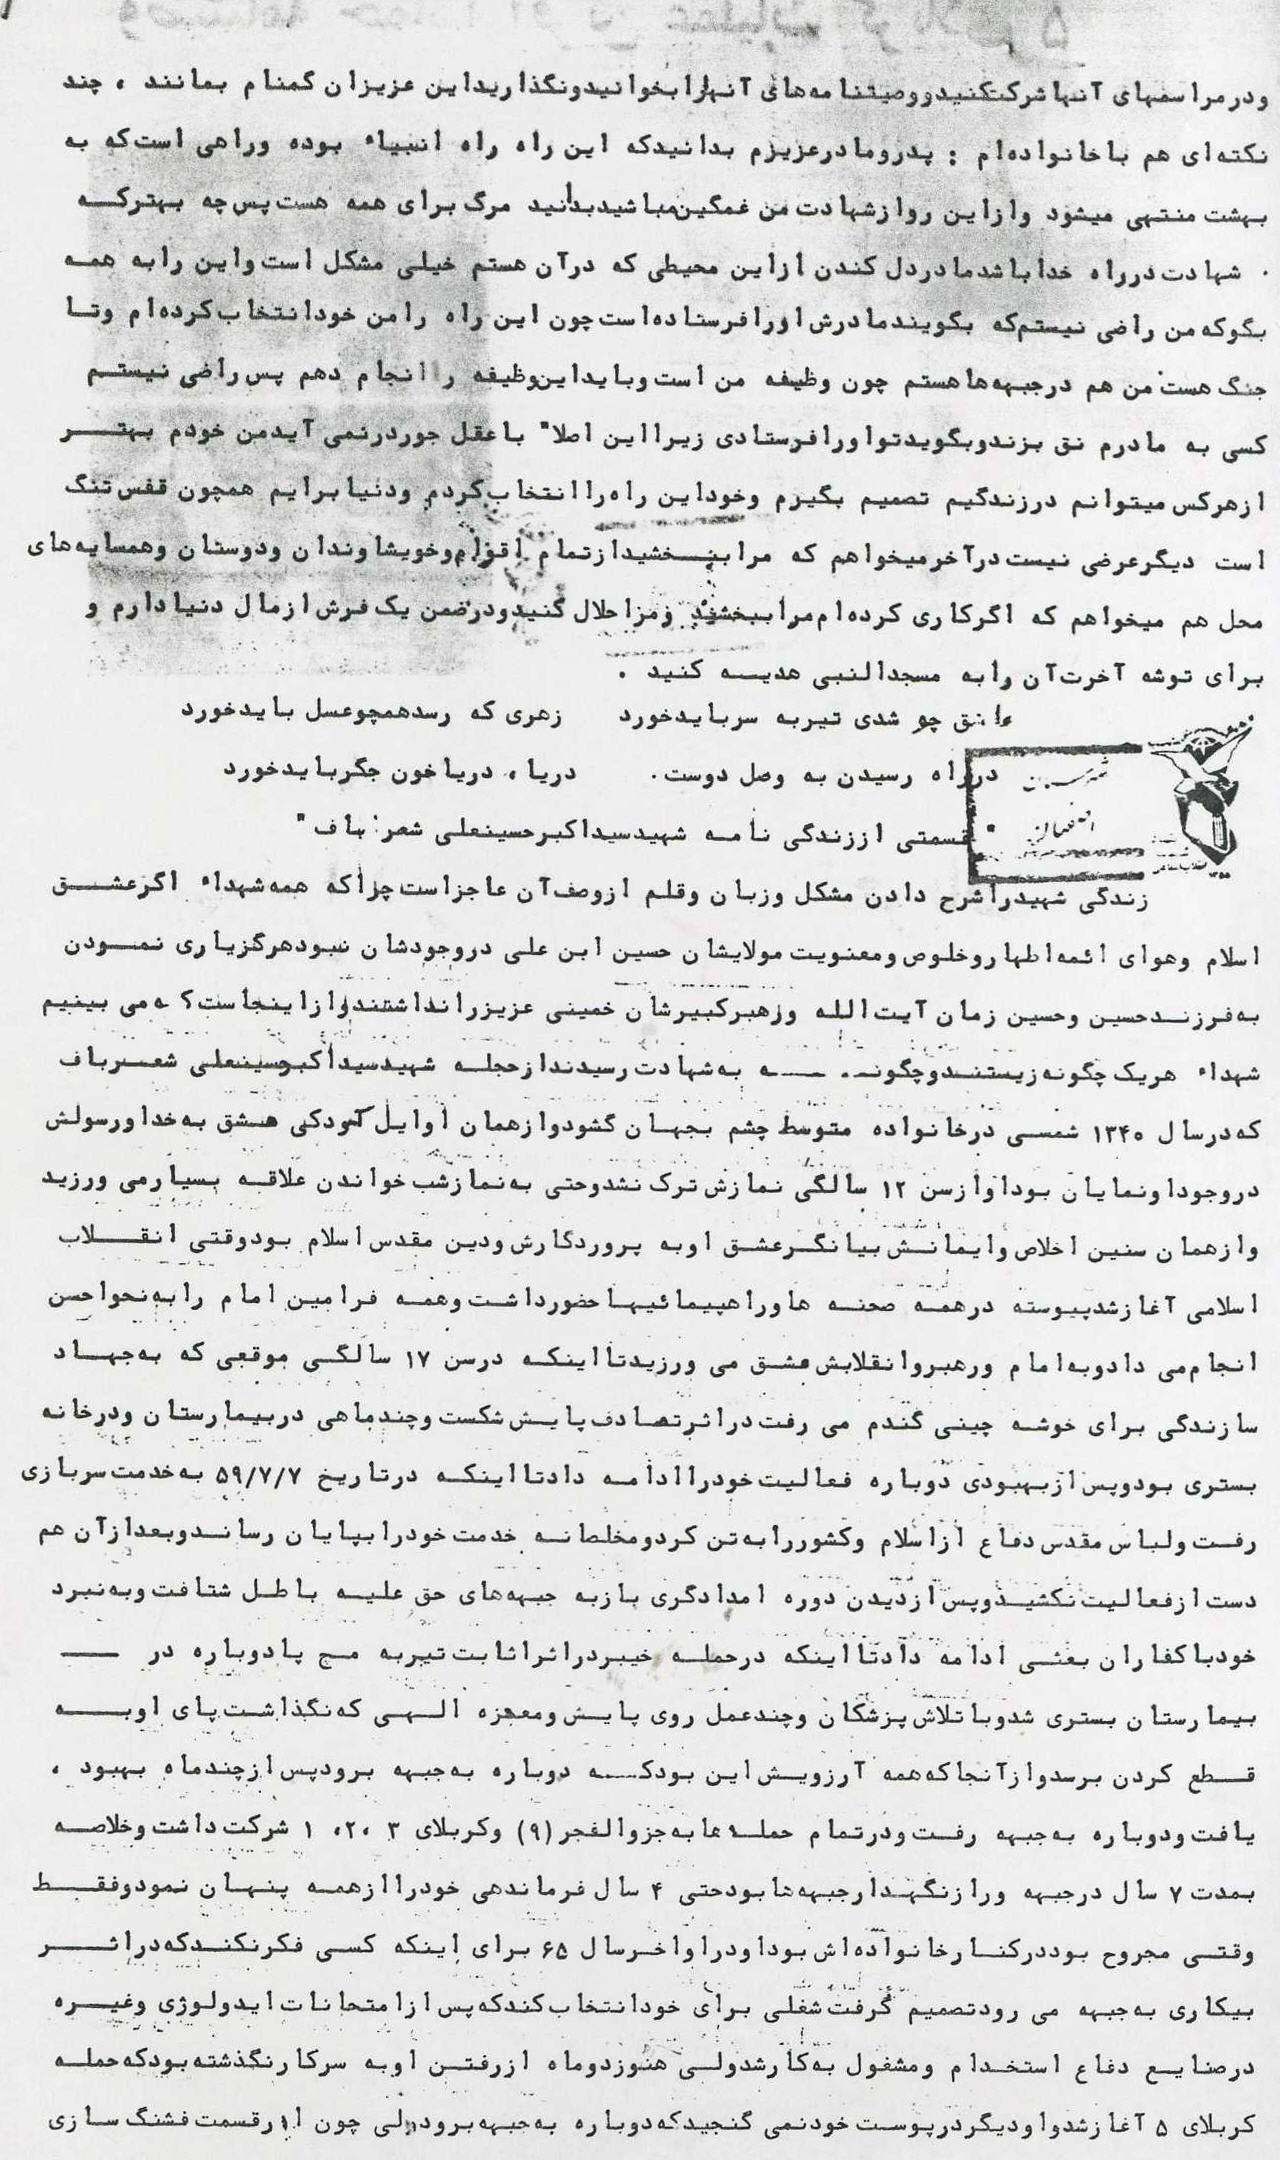 ودرمراسمهای آنهاشرکت‌کنیدووصیتنامه‌های آنهارابخوانیدونگذاریداین عزیزان گمنام بمانند ، چند
نکته‌ای هم باخانواده‌ام : پدرومادرعزیزم بدانیدکه این راه راه انبیاء بوده وراهی است‌که به
بهشت منتهی میشود وازاین روازشهادت من غمگین‌مباشیدبدانید مرگ برای همه هست‌پس‌چه بهترکه
شهادت درراه خداباشدمادردل کندن ازاین محیطی که درآن هستم خیلی مشکل است‌واین رابه همه
بگوکه‌من راضی نیستم‌که بگویندمادرش اورافرستاده‌است‌چون این راه رامن خودانتخاب‌کرده‌ام وتا
جنگ هست من هم درجبهه‌هاهستم چون وظیفه من است‌وبایداین‌وظیفه راانجام دهم پس‌راضی نیستم
کسی به مادرم نق بزندوبگویدتواورافرستادی زیرااین اصلا" باعقل جوردرنمی آیدمن خودم بهتر
ازهرکس‌میتوانم درزندگیم تصمیم بگیرم وخوداین راه‌راانتخاب‌کردم ودنیابرایم همچون قفس‌تنگ
است دیگرعرضی نیست‌درآخرمیخواهم که مراببخشیدازتمام اقوام‌وخویشاوندان ودوستان وهمسایه‌های
محل هم میخواهم که اگرکاری کرده‌ام‌مراببخشند ومراحلال کنیدودرضمن یک‌فرش‌ازمال دنیادارم و
برای توشه آخرت‌آن رابه مسجدالنبی هدیه کنید .
عاشق چو شدی تیربه سربایدخورد     زهری که رسدهمچوعسل بایدخورد
درراه رسیدن به وصل دوست .     دریا ، دریاخون جگربایدخورد
" قسمتی اززندگی نامه شهیدسیداکبرحسینعلی شعرباف "
زندگی شهیدراشرح دادن مشکل وزبان وقلم ازوصف‌آن عاجزاست‌چراکه همه‌شهداء اگرعشق
اسلام وهوای ائمه‌اطهاروخلوص‌ومعنویت مولایشان حسین ابن علی دروجودشان نبودهرگزیاری نمودن
به‌فرزندحسین وحسین زمان آیت‌الله ورهبرکبیرشان خمینی عزیزرانداشتندوازاینجاست که می بینیم
شهداء هریک‌چگونه‌زیستندوچگونه به‌شهادت رسیدندازجمله شهیدسیداکبرحسینعلی شعرباف
که‌درسال ۱۳۴۰ شمسی درخانواده متوسط چشم بجهان گشودوازهمان اوایل کودکی عشق به‌خداورسولش
دروجوداونمایان بودواوازسن ۱۲ سالگی نمازش‌ترک نشدوحتی به‌نمازشب‌خواندن علاقه بسیارمی ورزید
وازهمان سنین اخلاص وایمانش‌بیانگرعشق اوبه پروردگارش‌ودین مقدس‌اسلام بودوقتی انقلاب
اسلامی آغازشدپیوسته درهمه صحنه هاوراهپیمائیهاحضورداشت‌وهمه فرامین امام رابه‌نحواحسن
انجام‌می دادوبه‌امام ورهبروانقلابش عشق می ورزیدتااینکه درسن ۱۷ سالگی موقعی که به‌جهاد
سازندگی برای خوشه چینی گندم می رفت‌دراثرتصادف‌پایش‌شکست وچندماهی دربیمارستان ودرخانه
بستری بودوپس‌ازبهبودی دوباره فعالیت‌خودراادامه دادتااینکه درتاریخ ۵۹/۷/۷ به‌خدمت‌سربازی
رفت ولباس‌مقدس دفاع ازاسلام وکشوررابه‌تن کردومخلصانه خدمت خودرابپایان رساندوبعدازآن هم
دست ازفعالیت‌نکشیدوپس‌ازدیدن دوره امدادگری بازبه جبهه‌های حق علیه باطل شتافت وبه‌نبرد
خودباکفاران بعثی ادامه دادتااینکه درحمله خیبردراثراثابت‌تیربه مچ پادوباره در
بیمارستان بستری شدوباتلاش‌پزشکان وچندعمل روی پایش‌ومعجزه الهی که‌نگذاشت‌پای اوبه
قطع کردن برسدوازآنجاکه‌همه آرزویش‌این بودکه دوباره به‌جبهه برودپس‌ازچندماه بهبود ،
یافت ودوباره به‌جبهه رفت ودرتمام حمله‌هابه‌جزوالفجر(۹) وکربلای ۳ ،۲، ۱ شرکت داشت وخلاصه
بمدت ۷ سال درجبهه ورازنگهدارجبهه‌هابودحتی ۴ سال فرماندهی خودراازهمه پنهان نمودوفقط
وقتی مجروح بوددرکنارخانواده‌اش بوداودراواخرسال ۶۵ برای اینکه کسی فکرنکندکه‌دراثر
بیکاری به‌جبهه می رودتصمیم گرفت‌شغلی برای خودانتخاب‌کندکه‌پس ازامتحانات‌ایدولوژی وغیره
درصنایع دفاع استخدام ومشغول به‌کارشدولی هنوزدوماه ازرفتن اوبه سرکارنگذشته‌بودکه‌حمله
کربلای ۵ آغازشدواودیگردرپوست خودنمی گنجیدکه‌دوباره به‌جبهه‌برودولی چون اودرقسمت فشنگ سازی